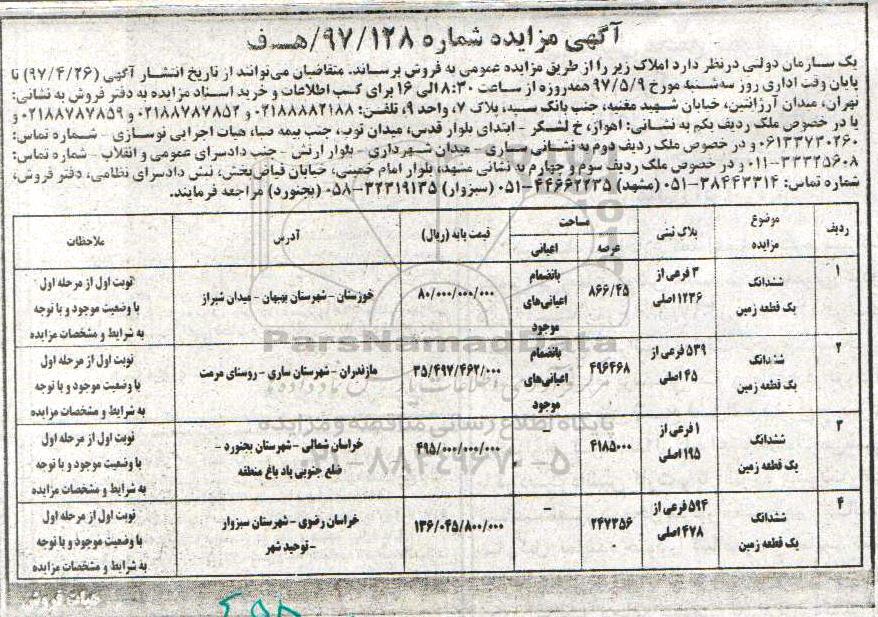 آگهی مزایده شماره ۹۷/۱۲۸/هـ ف
یک سازمان دولتی درنظر دارد املاک زیر را از طریق مزایده عمومی به فروش برساند. متقاضیان می‌توانند از تاریخ انتشار آگهی (۹۷/۴/۲۶) تا
پایان وقت اداری روز سه‌شنبه مورخ ۹۷/۵/۹ همه‌روزه از ساعت ۸:۳۰ الی ۱۶ برای کسب اطلاعات و خرید اسناد مزایده به دفتر فروش به نشانی:
تهران، میدان آرژانتین، خیابان شهید مغنیه، جنب بانک سپه، پلاک ۷، واحد ۹، تلفن: ۰۲۱۸۸۸۸۲۱۸۸ و ۰۲۱۸۸۷۸۷۸۵۲ و ۰۲۱۸۸۷۸۷۸۵۹ و
یا در خصوص ملک ردیف یکم به نشانی: اهواز، خ لشکر - ابتدای بلوار قدس، میدان توپ، جنب بیمه صبا، هیات اجرایی نوسازی - شماره تماس:
۰۶۱۳۳۷۳۰۲۶۰ و در خصوص ملک ردیف دوم به نشانی ساری - میدان شهرداری - بلوار ارتش - جنب دادسرای عمومی و انقلاب - شماره تماس:
۰۱۱-۳۳۳۲۵۶۰۸ و در خصوص ملک ردیف سوم و چهارم به نشانی مشهد، بلوار امام خمینی، خیابان فیاض‌بخش، نبش دادسرای نظامی، دفتر فروش،
شماره تماس: ۳۸۴۴۳۳۱۴-۰۵۱ (مشهد) ۴۴۶۶۲۲۳۵-۰۵۱ (سبزوار) ۳۲۳۱۹۱۳۵-۰۵۸ (بجنورد) مراجعه فرمایند.
ردیف موضوع مزایده پلاک ثبتی مساحت عرصه اعیانی قیمت پایه (ریال) آدرس ملاحظات
۱ ششدانگ ۳ فرعی از بانضمام نوبت اول از مرحله اول
یک قطعه زمین ۱۲۳۶ اصلی ۸۶۶/۴۵ اعیانی‌های ۸۰/۰۰۰/۰۰۰/۰۰۰ خوزستان - شهرستان بهبهان - میدان شیراز با وضعیت موجود و با توجه
موجود به شرایط و مشخصات مزایده
۲ ششدانگ ۵۳۹ فرعی از بانضمام نوبت اول از مرحله اول
یک قطعه زمین ۴۵ اصلی ۴۹۶۴۶۸ اعیانی‌های ۳۵/۴۹۷/۴۶۲/۰۰۰ مازندران - شهرستان ساری - روستای مرمت با وضعیت موجود و با توجه
موجود به شرایط و مشخصات مزایده
۳ ششدانگ ۱ فرعی از - خراسان شمالی - شهرستان بجنورد - نوبت اول از مرحله اول
یک قطعه زمین ۱۹۵ اصلی ۴۱۸۵۰۰۰ ۴۹۵/۰۰۰/۰۰۰/۰۰۰ ضلع جنوبی پاد باغ منطقه با وضعیت موجود و با توجه
به شرایط و مشخصات مزایده
۴ ششدانگ ۵۹۴ فرعی از - خراسان رضوی - شهرستان سبزوار نوبت اول از مرحله اول
یک قطعه زمین ۴۷۸ اصلی ۲۴۷۳۵۶ ۱۳۶/۰۴۵/۸۰۰/۰۰۰ - توحید شهر با وضعیت موجود و با توجه
به شرایط و مشخصات مزایده
هیات فروش
ParsNamadData
پایگاه اطلاع رسانی مناقصه و مزایده
۰۲۱-۸۸۳۴۹۶۷۰-۵